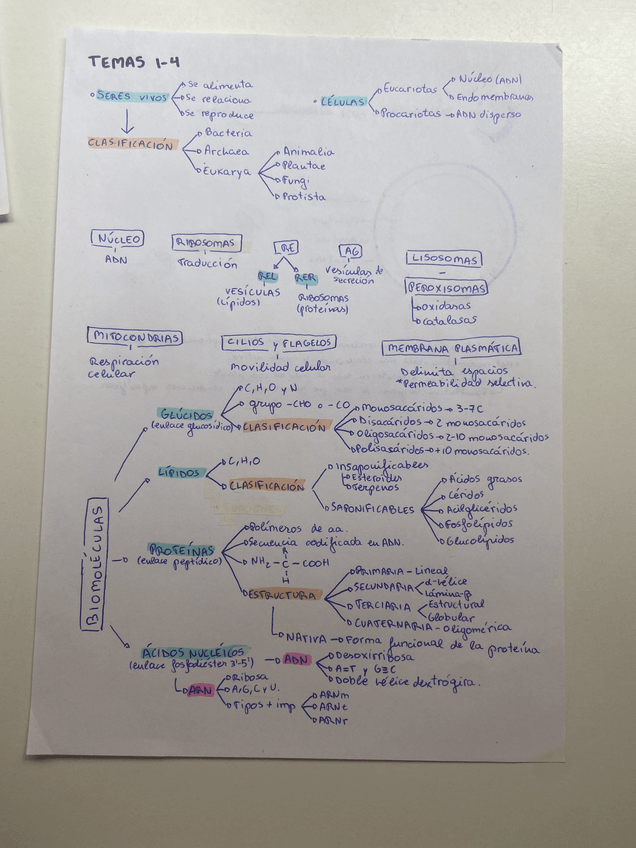 TEMAS 1-4
SERES VIVOS
Se alimenta
Se relaciona
Se reproduce
CÉLULAS
Eucariotas
Núcleo (ADN)
Endomembranas
Procariotas → ADN disperso
CLASIFICACIÓN
Bacteria
Archaea
Eukarya
Animalia
Plantae
Fungi
Protista
NÚCLEO
ADN
RIBOSOMAS
Traducción
RE
REL
VESÍCULAS
(Lípidos)
RER
RIBOSOMAS
(proteínas)
AG
Vesículas de
secreción
LISOSOMAS
PEROXISOMAS
oxidasas
catalasas
MITOCONDRIAS
Respiración
celular
CILIOS y FLAGELOS
movilidad celular
MEMBRANA PLASMÁTICA
Delimita espacios
*Permeabilidad selectiva.
BIOMOLÉCULAS
GLÚCIDOS
(enlace glucosídico)
C, H, O y N
grupo -CHO o -CO
CLASIFICACIÓN
Monosacáridos → 3-7C
Disacáridos → 2 monosacáridos
Oligosacáridos → 2-10 monosacáridos
Polisacáridos → +10 monosacáridos.
LÍPIDOS
C, H, O
CLASIFICACIÓN
Insaponificables
Esteroides
Terpenos
SAPONIFICABLES
Ácidos grasos
Céridos
Acilglicéridos
Fosfolípidos
Glucolípidos
PROTEÍNAS
(enlace peptídico)
Polímeros de aa.
Secuencia codificada en ADN.
R
NH₂ - C - COOH
H
ESTRUCTURA
PRIMARIA - Lineal
SECUNDARIA
α-hélice
Lámina-β
TERCIARIA
Estructural
Globular
CUATERNARIA - Oligomérica
NATIVA → Forma funcional de la proteína
ÁCIDOS NUCLÉICOS
(enlace fosfodiéster 3'-5')
ADN
Desoxirribosa
A=T y G≡C
Doble hélice dextrógira.
ARN
Ribosa
A, G, C y U.
Tipos + imp
ARNm
ARNt
ARNr